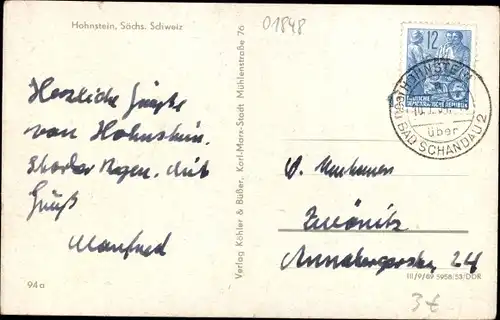 Hohnstein, Sächs. Schweiz
01848
Herzliche Grüße
von Hohnstein.
Starker Regen. Mit
Gruß
Manfred
94a
Verlag Köhler & Büßer, Karl-Marx-Stadt Mühlenstraße 76
12
DEUTSCHE
DEMOKRATISCHE REPUBLIK
HOHNSTEIN
über
BAD SCHANDAU 2
Zwönitz
Annabergerstr. 24
III/9/69 5958/53/DDR
3 €